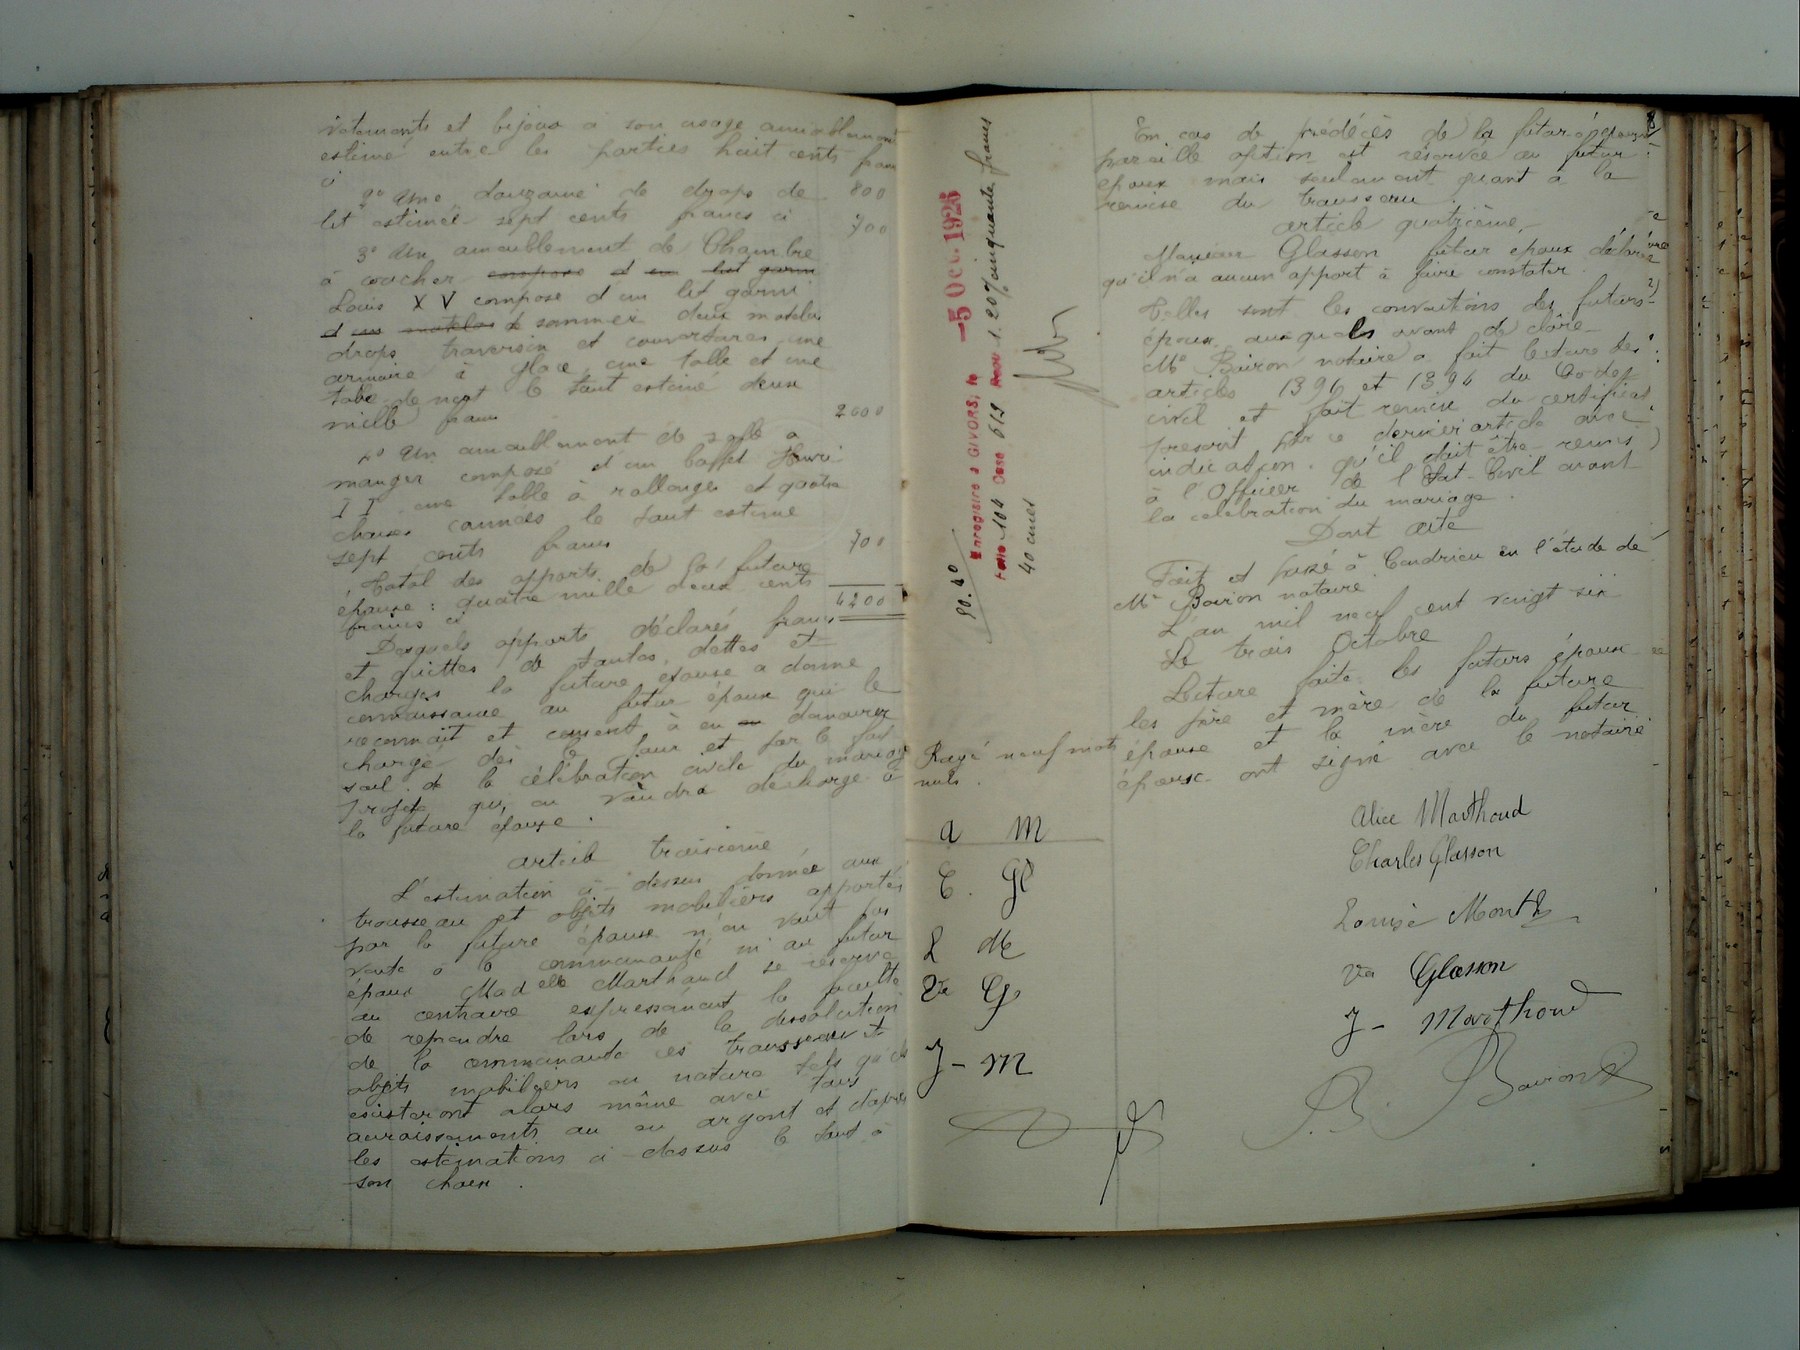 vetements et bijoux à son usage amiablement
estimé entre les parties huit cents francs
ci 800
2° Une douzaine de draps de
lit estimée sept cents francs ci 700
3° Un ameublement de Chambre
à coucher compose d un lit garni
Louis XV compose d'un lit garni
d un matelas & sommier deux matelas
draps traversin et couvertures, une
armoire à glace, une table et une
table de nuit le tout estimé deux
mille francs 2000
4° Un ameublement de salle a
manger composé d'un buffet Henri
II une table à rallonges et quatre
chaises cannées le tout estimé
sept cents francs 700
Total des apports de la future
épouse : quatre mille deux cents
francs ci 4200
Desquels apports déclarés francs
et quittes de toutes dettes et
charges la future épouse a donné
connaissance au futur époux qui le
reconnait et consent à en demeurer
chargé dès le jour et par le fait
seul de la célébration civile du mariage
projeté qui en vaudra décharge à
la future épouse.
article troisième
L'estimation ci-dessus donnée aux
trousseau et objets mobiliers apportés
par la future épouse n'en vaut pas
vente à la communauté ni au futur
époux Madelle Marthoud se réserve
au contraire expressément la faculté
de reprendre lors de la dissolution
de la communauté ces trousseau et
objets mobiliers en nature tels qu'ils
existeront alors même avec tous
accroissements ou en argent et d'après
les estimations ci-dessus le tout à
son choix.
Enregistré à GIVORS, le -5 Oct. 1926
Folio 104 Case 612 Reçu 1.20% cinquante francs
40 cmes
50.40
Rayé neuf mots
nuls.
A M
C. Gl
L M
Ve G
J - M
En cas de prédécès de la future épouse
pareille option est réservée au futur
époux mais seulement quant à la
remise du trousseau.
article quatrième.
Monsieur Glasson futur epoux déclare
qu'il n'a aucun apport à faire constater.
Telles sont les conventions des futurs
époux auxquels avant de clôre
Me Boiron notaire a fait lecture des
articles 1391 et 1394 du Code
civil et fait remise du certificat
prescrit par ce dernier article avec
indication qu'il doit être remis
à l'Officier de l'Etat-Civil avant
la celebration du mariage.
Dont acte
Fait et passé à Condrieu en l'étude de
Me Boiron notaire
L'an mil neuf cent vingt six
Le trois Octobre
Lecture faite les futurs époux
les père et mère de la future
épouse et la mère du futur
époux ont signé avec le notaire
Alice Marthoud
Charles Glasson
Louise
Ve Glasson
J - Marthoud
B. Boiron